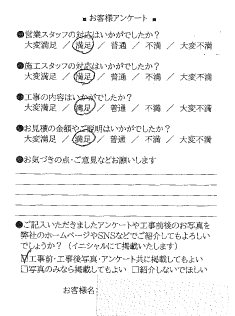 ■ お客様アンケート ■
●営業スタッフの対応はいかがでしたか?
大変満足 / 満足 / 普通 / 不満 / 大変不満
●施工スタッフの対応はいかがでしたか?
大変満足 / 満足 / 普通 / 不満 / 大変不満
●工事の内容はいかがでしたか?
大変満足 / 満足 / 普通 / 不満 / 大変不満
●お見積の金額やご説明はいかがでしたか?
大変満足 / 満足 / 普通 / 不満 / 大変不満
●お気づきの点・ご意見などお願いします
●ご記入いただきましたアンケートや工事前後のお写真を
弊社のホームページやSNSなどでご紹介してもよろしい
でしょうか? (イニシャルにて掲載いたします)
☑工事前・工事後写真・アンケート共に掲載してもよい
□写真のみなら掲載してもよい □紹介しないでほしい
お客様名: